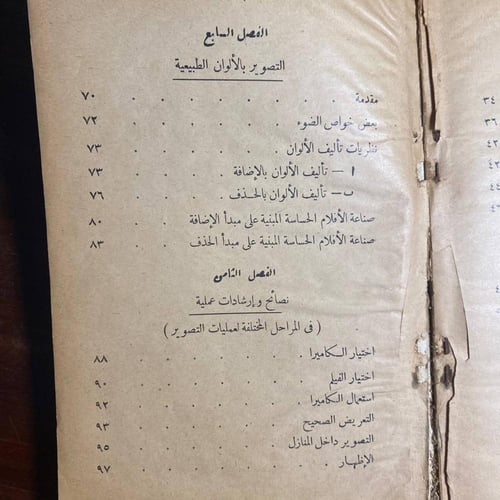 الفصل السابع
التصوير بالألوان الطبيعية
مقدمة . . . . . . . . ٧٠
بعض خواص الضوء . . . . . . ٧٢
نظريات تأليف الألوان . . . . . . ٧٣
ا — تأليف الألوان بالإضافة . . . . ٧٣
ب — تأليف الألوان بالحذف . . . . ٧٦
صناعة الأفلام الحساسة المبنية على مبدأ الإضافة . ٨٠
صناعة الأفلام الحساسة المبنية على مبدأ الحذف . . ٨٣
الفصل الثامن
نصائح وإرشادات عملية
( فى المراحل المختلفة لعمليات التصوير )
اختيار الكاميرا . . . . . . . ٨٨
اختيار الفيلم . . . . . . . ٩٠
استعمال الكاميرا . . . . . . ٩٢
التعريض الصحيح . . . . . . ٩٣
التصوير داخل المنازل . . . . . ٩٥
الإظهار . . . . . . . ٩٧
٣٤
٣٦
٤٢